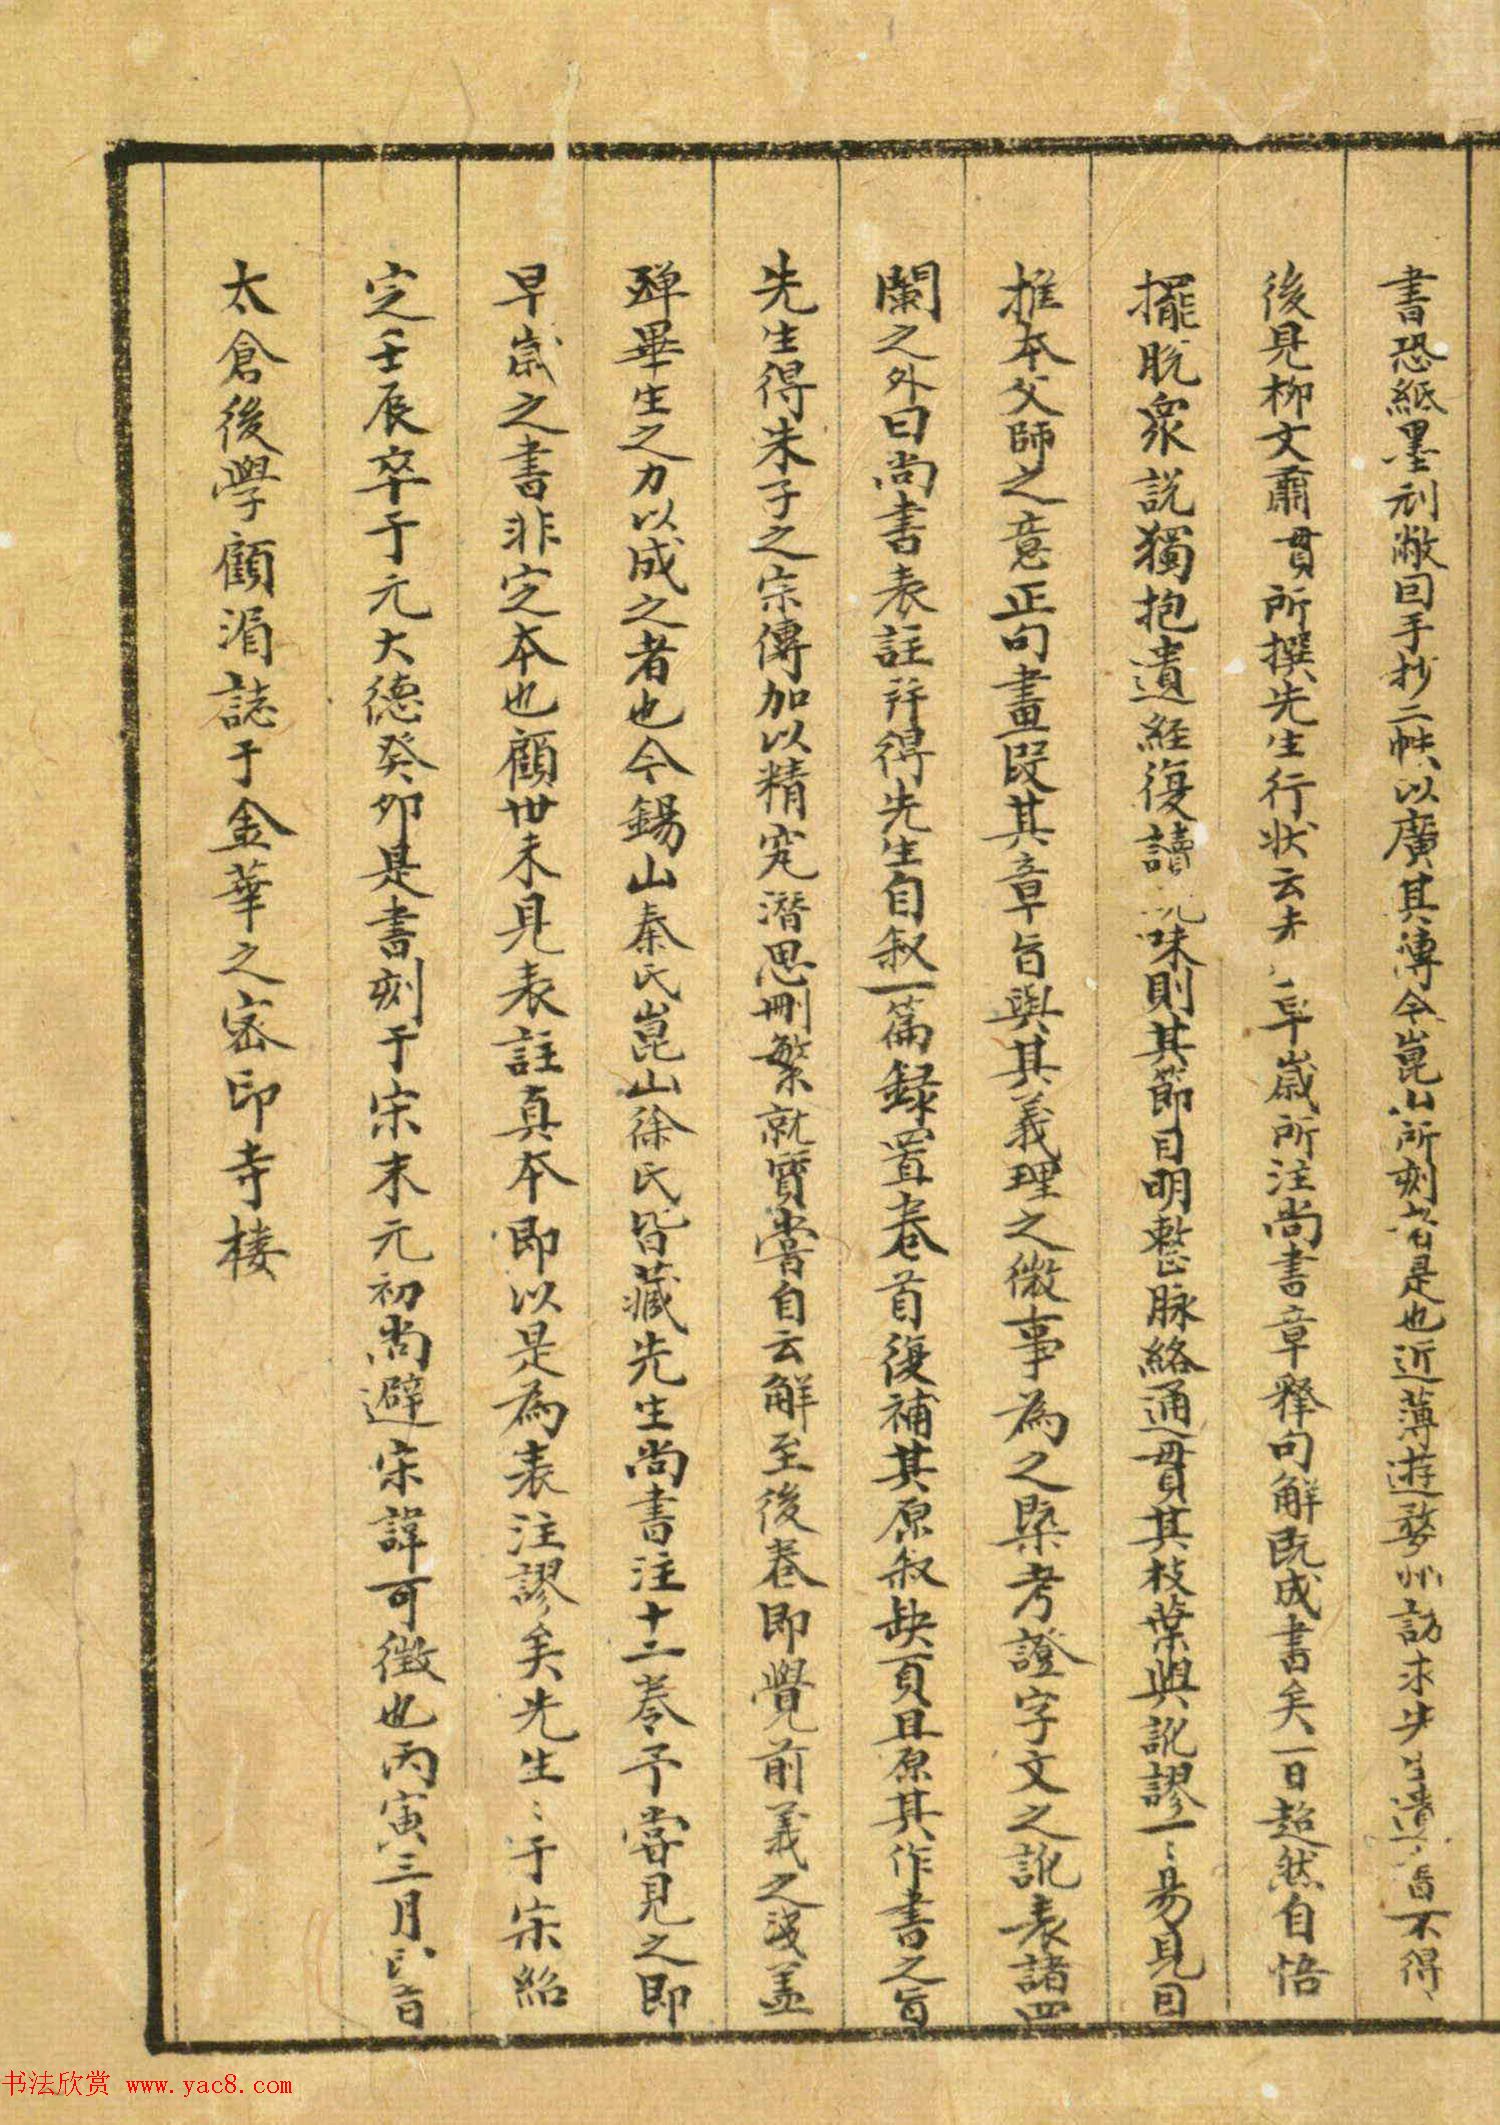 書恐紙墨刓敝因手抄二帙以廣其傳今崑山所刻者是也近薄遊婺州訪求先生遺書不得
後見柳文肅貫所撰先生行狀云先早歲所注尚書章釋句解既成書矣一日超然自悟
擺脫衆說獨抱遺經復讀玩味則其節目明整脉絡通貫其枝葉與訛謬一〻易見因
推本父師之意正句畫段其章旨與其義理之微事為之槩考證字文之訛表諸四
闌之外曰尚書表註并得先生自叙一篇録置卷首復補其原叙缺頁且原其作書之旨
先生得朱子之宗傳加以精究潛思刪繁就實嘗自云解至後卷即覺前義之淺盖
殫畢生之力以成之者也今錫山秦氏崑山徐氏皆藏先生尚書注十二卷予嘗見之即
早歲之書非定本也顧世未見表註真本即以是為表注謬矣先生〻于宋紹
定壬辰卒于元大德癸卯是書刻于宋末元初尚避宋諱可徵也丙寅三月
太倉後學顧湄誌于金華之密印寺樓
书法欣赏 www.yac8.com